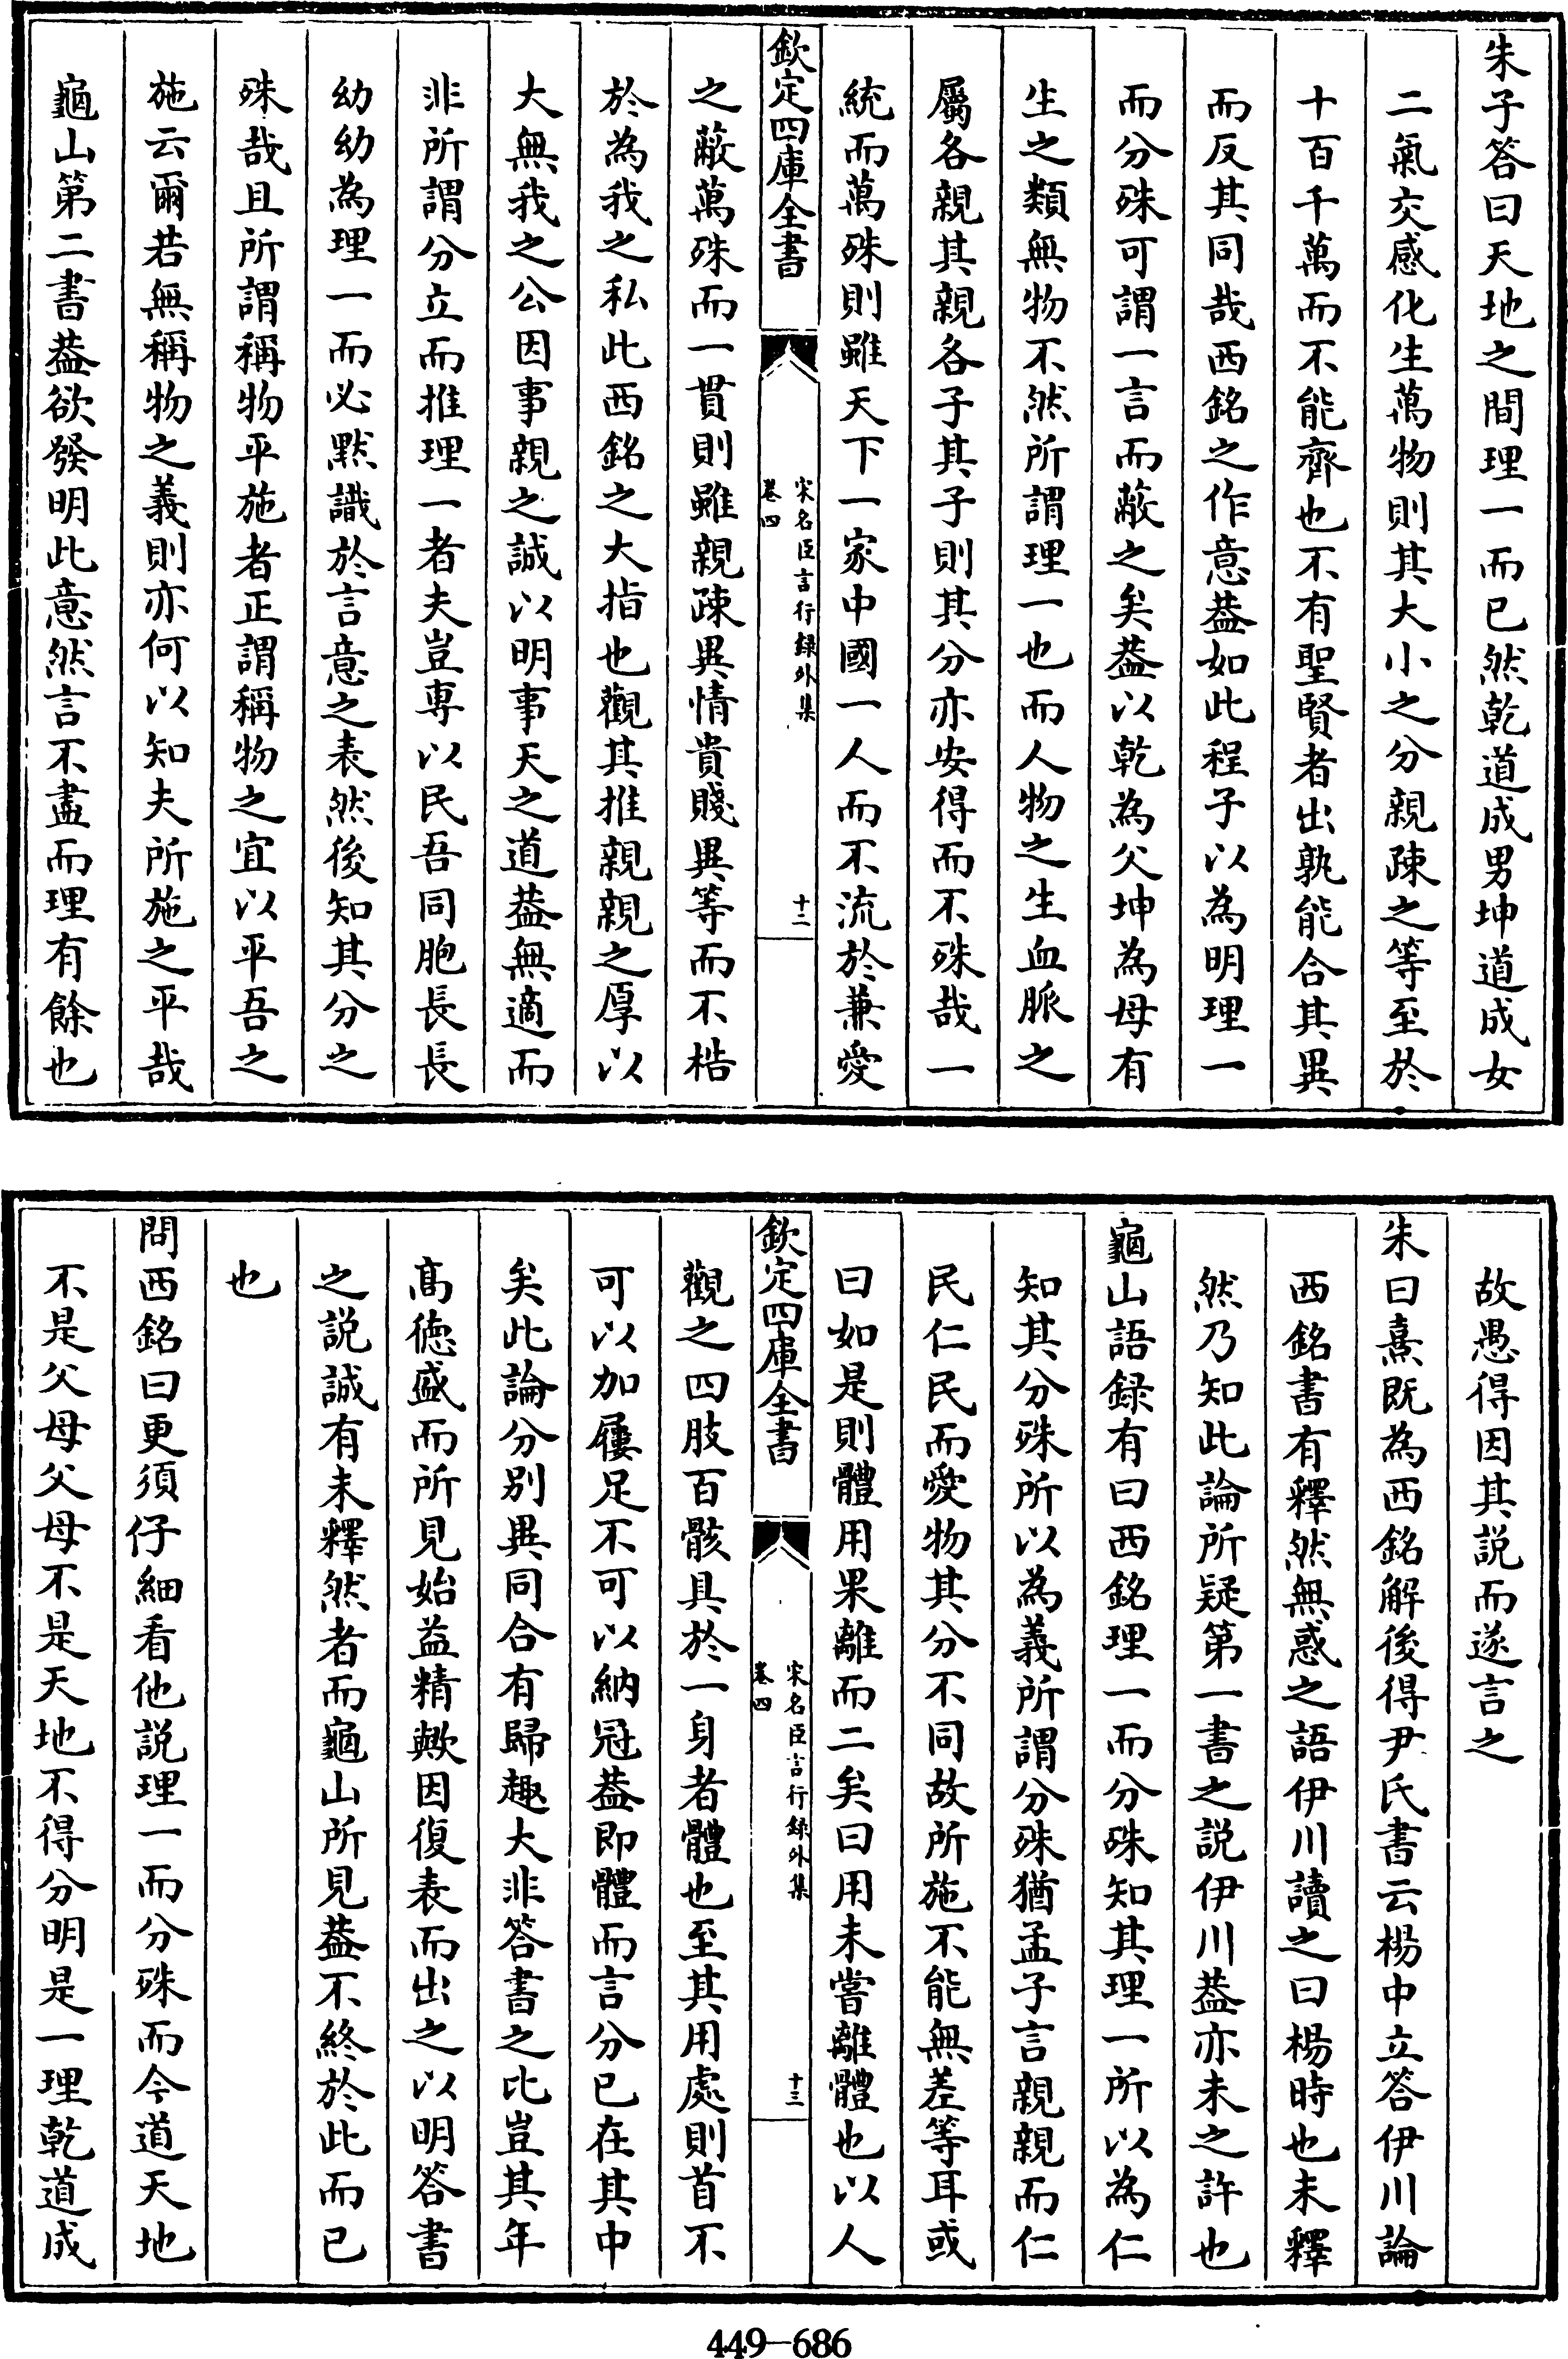 朱子答曰天地之間理一而已然乾道成男坤道成女
二氣交感化生萬物則其大小之分親疎之等至於
十百千萬而不能齊也不有聖賢者出孰能合其異
而反其同哉西銘之作意葢如此程子以為明理一
而分殊可謂一言而蔽之矣葢以乾為父坤為母有
生之類無物不然所謂理一也而人物之生血脈之
屬各親其親各子其子則其分亦安得而不殊哉一
統而萬殊則雖天下一家中國一人而不流於兼愛
欽定四庫全書
宋名臣言行録外集
卷四
十二
之蔽萬殊而一貫則雖親疎異情貴賤異等而不梏
於為我之私此西銘之大指也觀其推親親之厚以
大無我之公因事親之誠以明事天之道葢無適而
非所謂分立而推理一者夫豈專以民吾同胞長長
幼幼為理一而必黙識於言意之表然後知其分之
殊哉且所謂稱物平施者正謂稱物之宜以平吾之
施云爾若無稱物之義則亦何以知夫所施之平哉
龜山第二書葢欲發明此意然言不盡而理有餘也
故愚得因其説而遂言之
朱曰熹既為西銘解後得尹氏書云楊中立答伊川論
西銘書有釋然無惑之語伊川讀之曰楊時也未釋
然乃知此論所疑第一書之説伊川葢亦未之許也
龜山語録有曰西銘理一而分殊知其理一所以為仁
知其分殊所以為義所謂分殊猶孟子言親親而仁
民仁民而愛物其分不同故所施不能無差等耳或
曰如是則體用果離而二矣曰用未嘗離體也以人
欽定四庫全書
宋名臣言行録外集
卷四
十三
觀之四肢百骸具於一身者體也至其用處則首不
可以加屨足不可以納冠葢即體而言分已在其中
矣此論分别異同合有歸趣大非答書之比豈其年
髙徳盛而所見始益精歟因復表而出之以明答書
之説誠有未釋然者而龜山所見葢不終於此而已
也
問西銘曰更須仔細看他説理一而分殊而今道天地
不是父母父母不是天地不得分明是一理乾道成
449-686